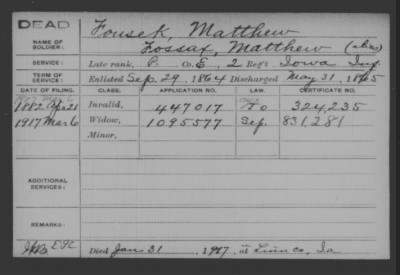 DEAD
NAME OF SOLDIER: Fousek, Matthew
Fossax, Matthew (alias)
SERVICE: Late rank, P. Co. E, 2 Reg't Iowa Inf.
TERM OF SERVICE: Enlisted Sep. 29, 1864 Discharged May 31, 1865
DATE OF FILING. CLASS. APPLICATION NO. LAW. CERTIFICATE NO.
1882 Apr 21 Invalid, 447017 324,235
1917 Mar 6 Widow, 1095577 Sep. 831281
Minor,
ADDITIONAL SERVICES:
REMARKS:
Died Jan 31, 1917, at Linn Co, Ia